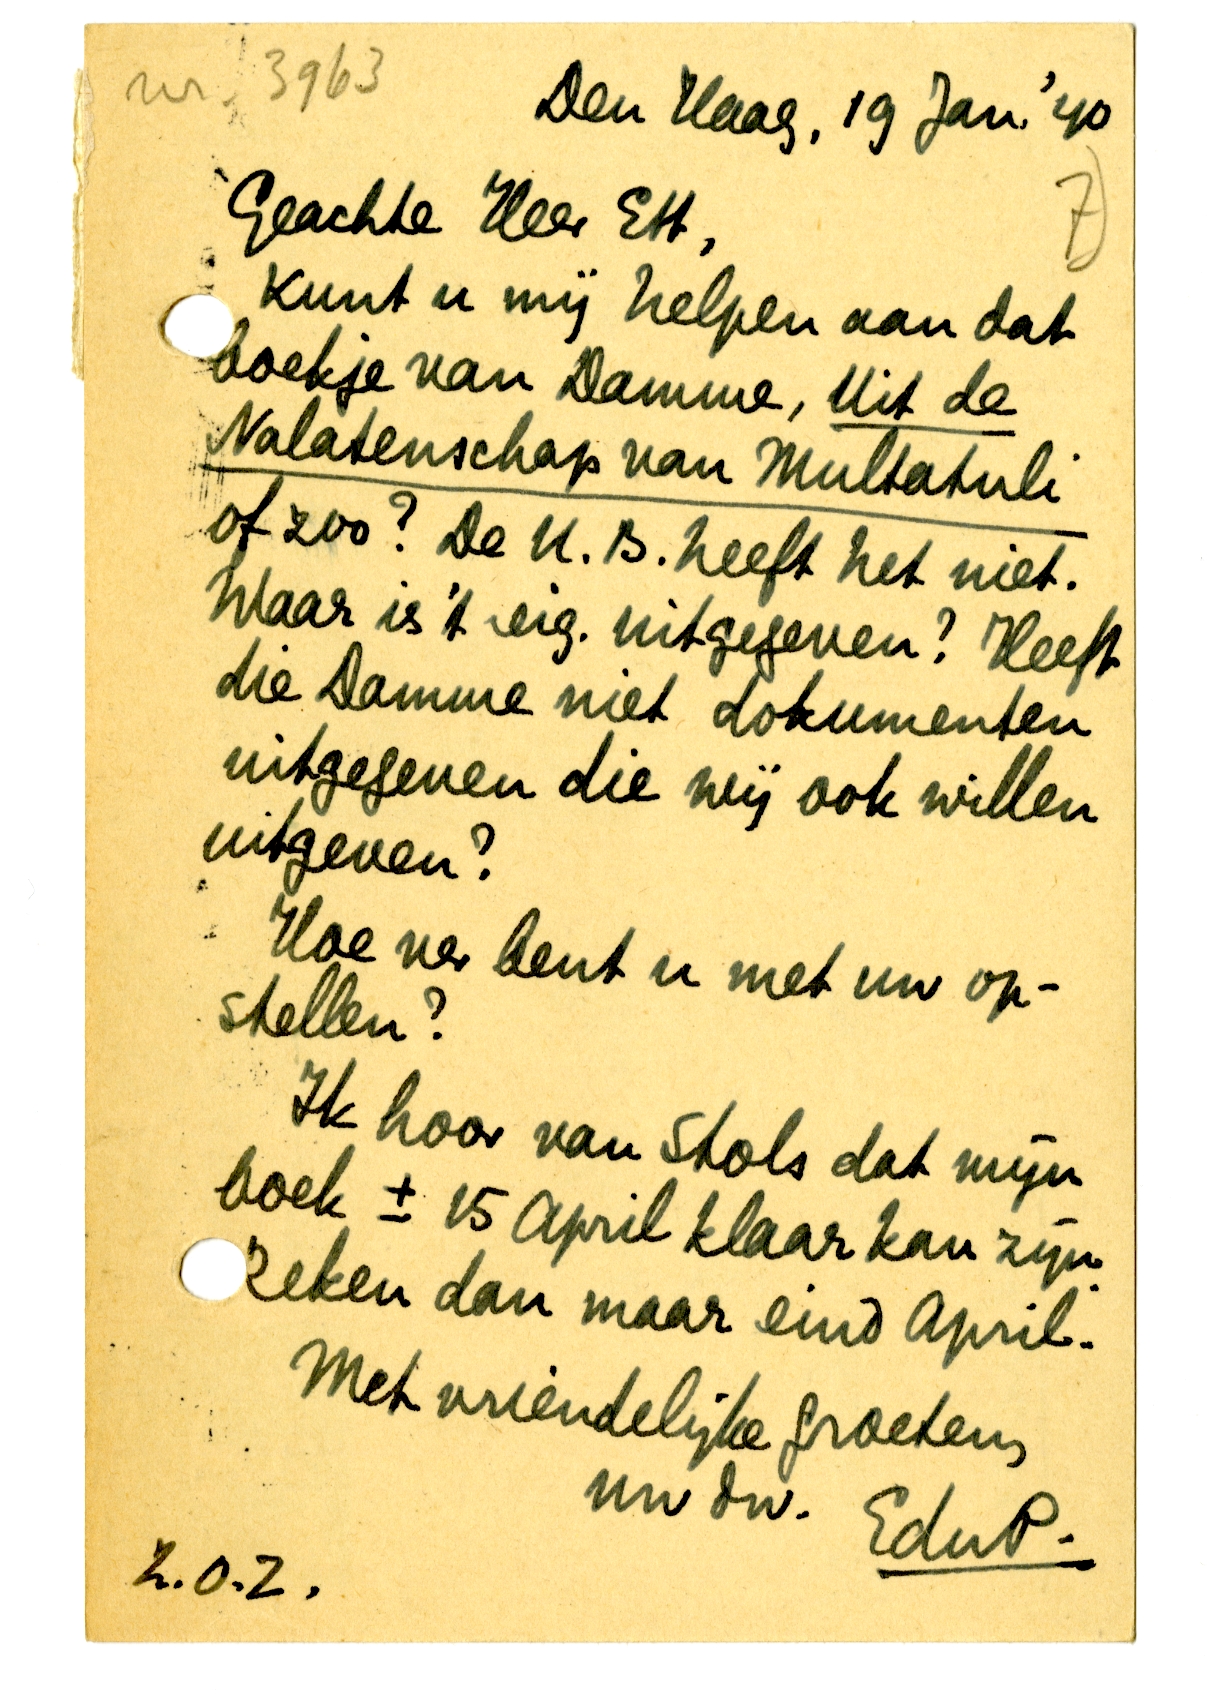 nr. 3963
Den Haag, 19 Jan. '40
7)
Geachte Heer Ett,
Kunt u mij helpen aan dat
boekje van Damme, Uit de
Nalatenschap van Multatuli
of zoo? De U.B. heeft het niet.
Waar is 't eig. uitgegeven? Heeft
die Damme niet dokumenten
uitgegeven die wij ook willen
uitgeven?
Hoe ver bent u met uw op-
stellen?
Ik hoor van Stols dat mijn
boek ± 15 April klaar kan zijn.
Zeken dan maar eind April.
Met vriendelijke groeten,
uw dw. EduP.
Z.O.Z.